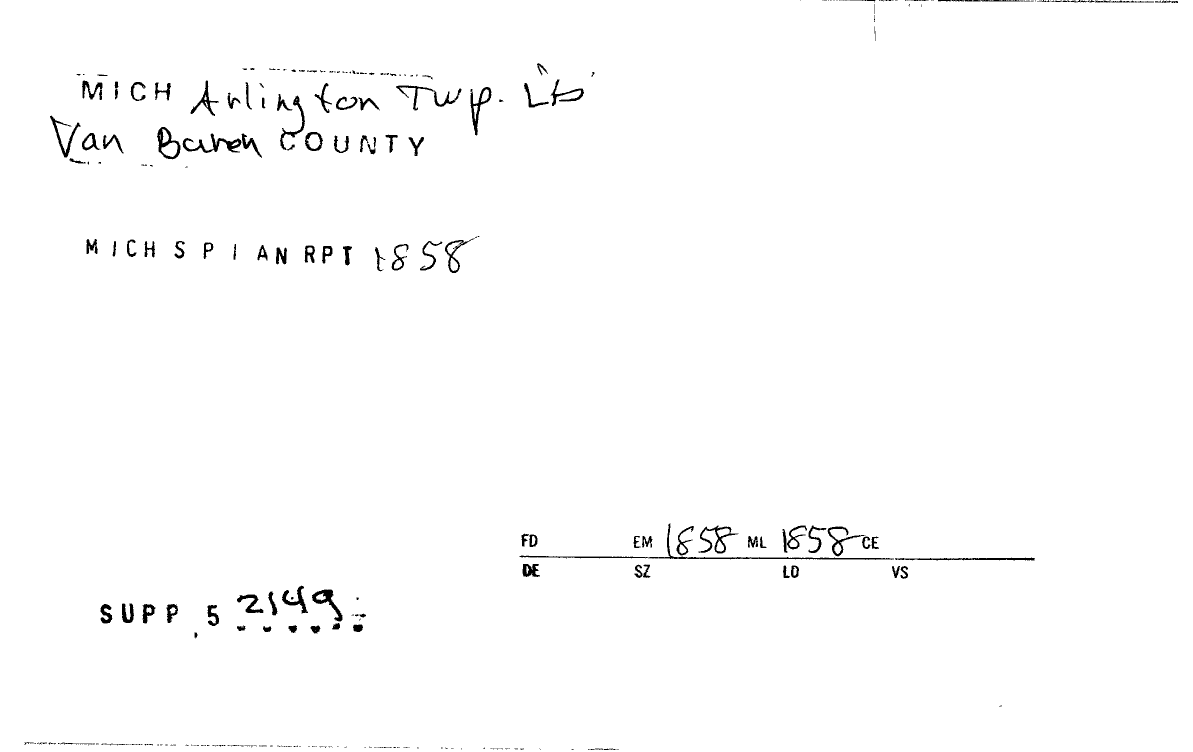 MICH Arlington Twp.
Van Buren COUNTY
MICH S P I AN RPT 1858
FD EM 1858 ML 1858 CE
DE SZ LO VS
SUPP, 5 2149